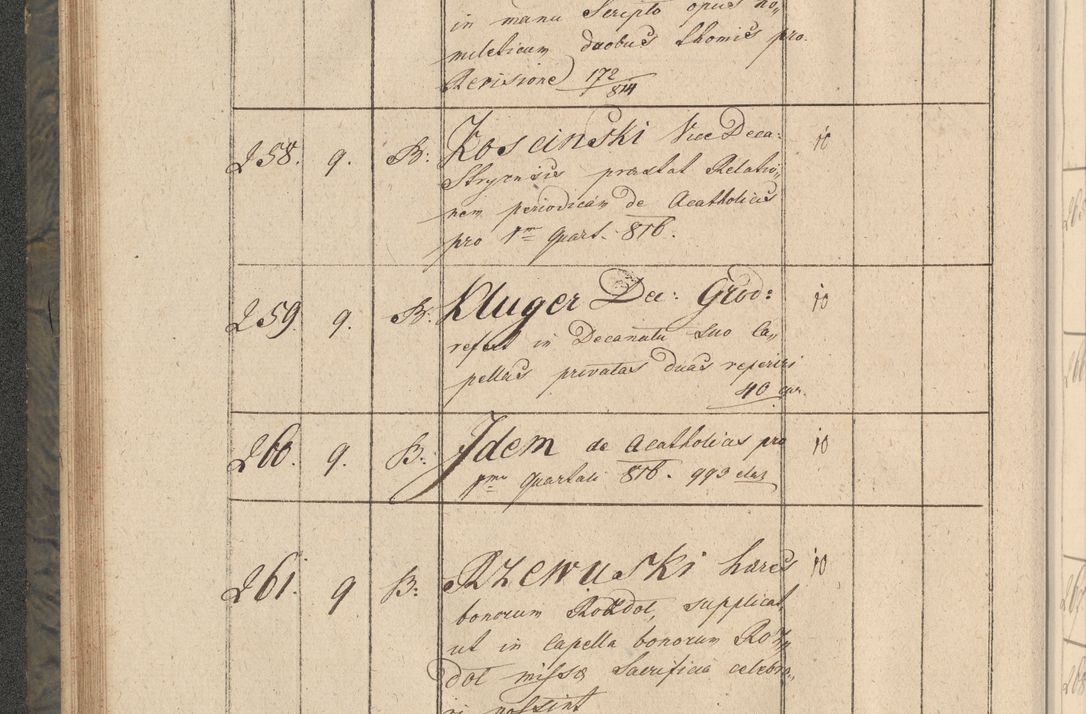 in manu Scripto opus ho,,
mileticum duobus thomis pro
Revisione 172/814
258. 9. B: Koscinski Vice Deca: 10
Stryensis praestat Relatio,,
nem periodicam de Acatholicis
pro 1m quart. 816.
259. 9. B: Kluger Dec: Grod: 10
refert in Decanatu suo Ca,,
pellas privatas duas reperiri
40
260. 9. B: Idem de Acatholicis pro 10
1mo quartali 816. 993
261. 9 B: Rzewuski haeres 10
bonorum Rozdol, supplicat
ut in Capella bonorum Roz,,
dol missae Sacrificia celebra,,
ri possint